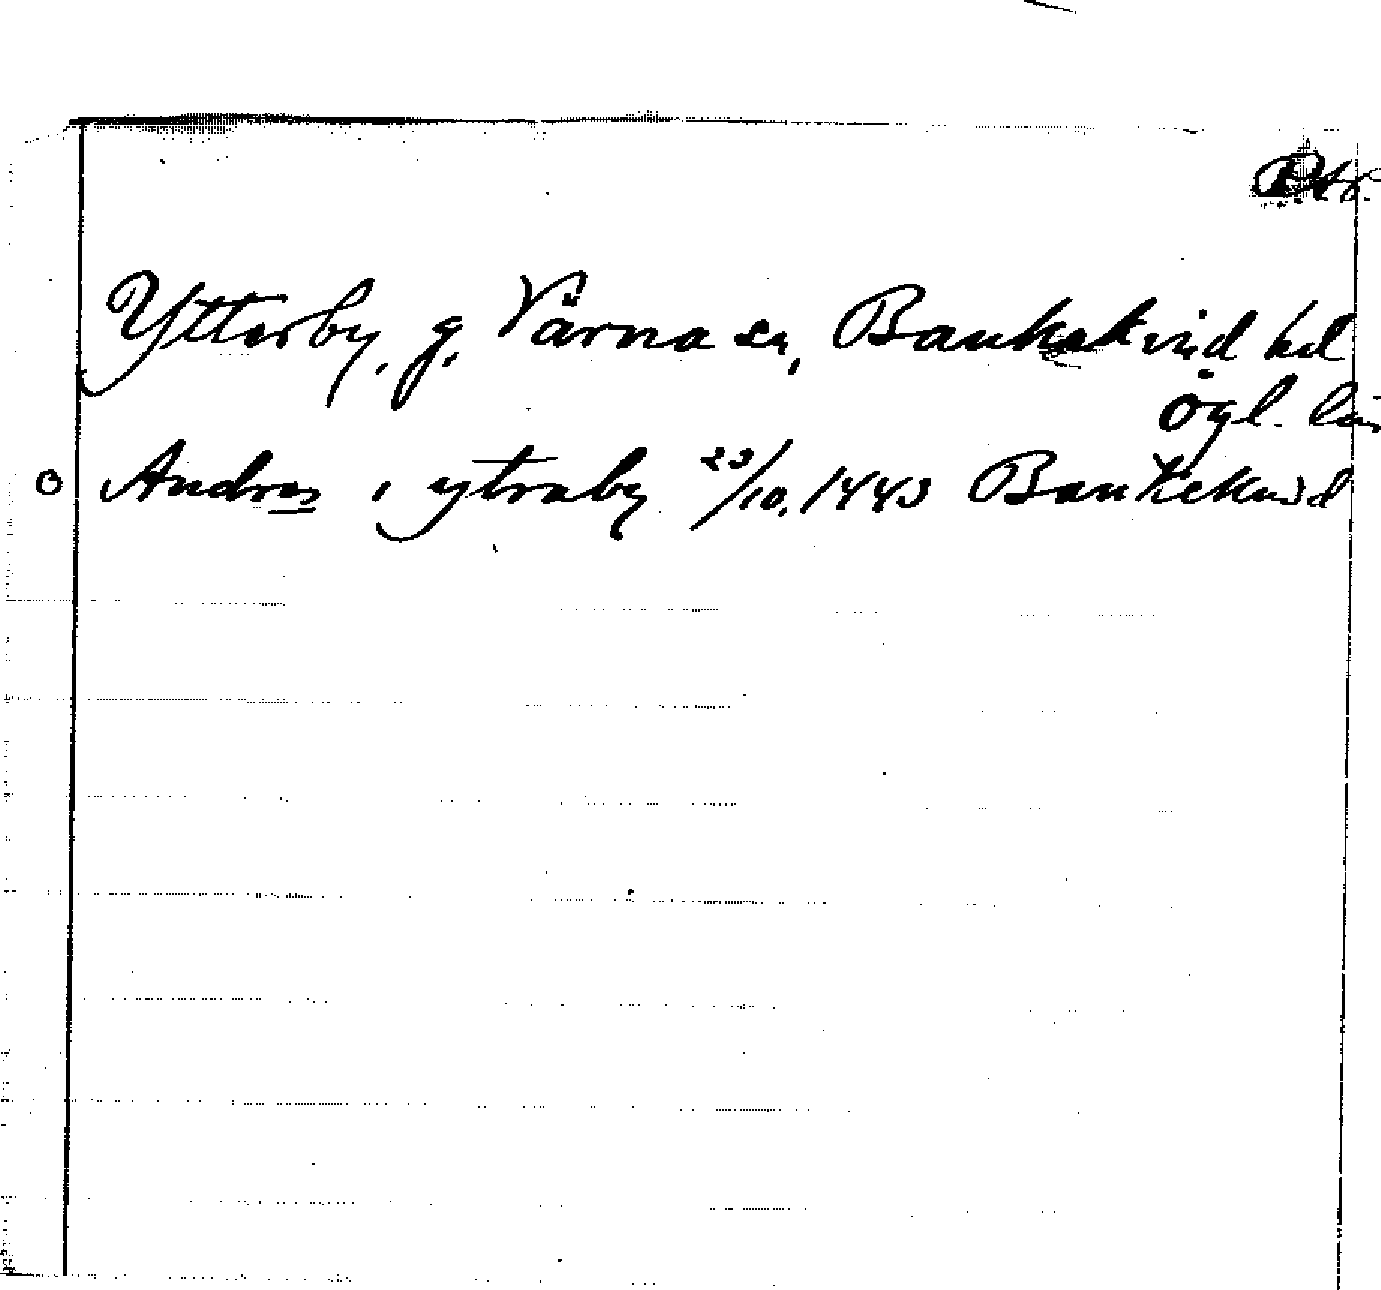 Ytterby, g, Vårna sn, Bankekind hd
Ögl. län
o Andres i ytraby 23/10, 1443 Bankekind